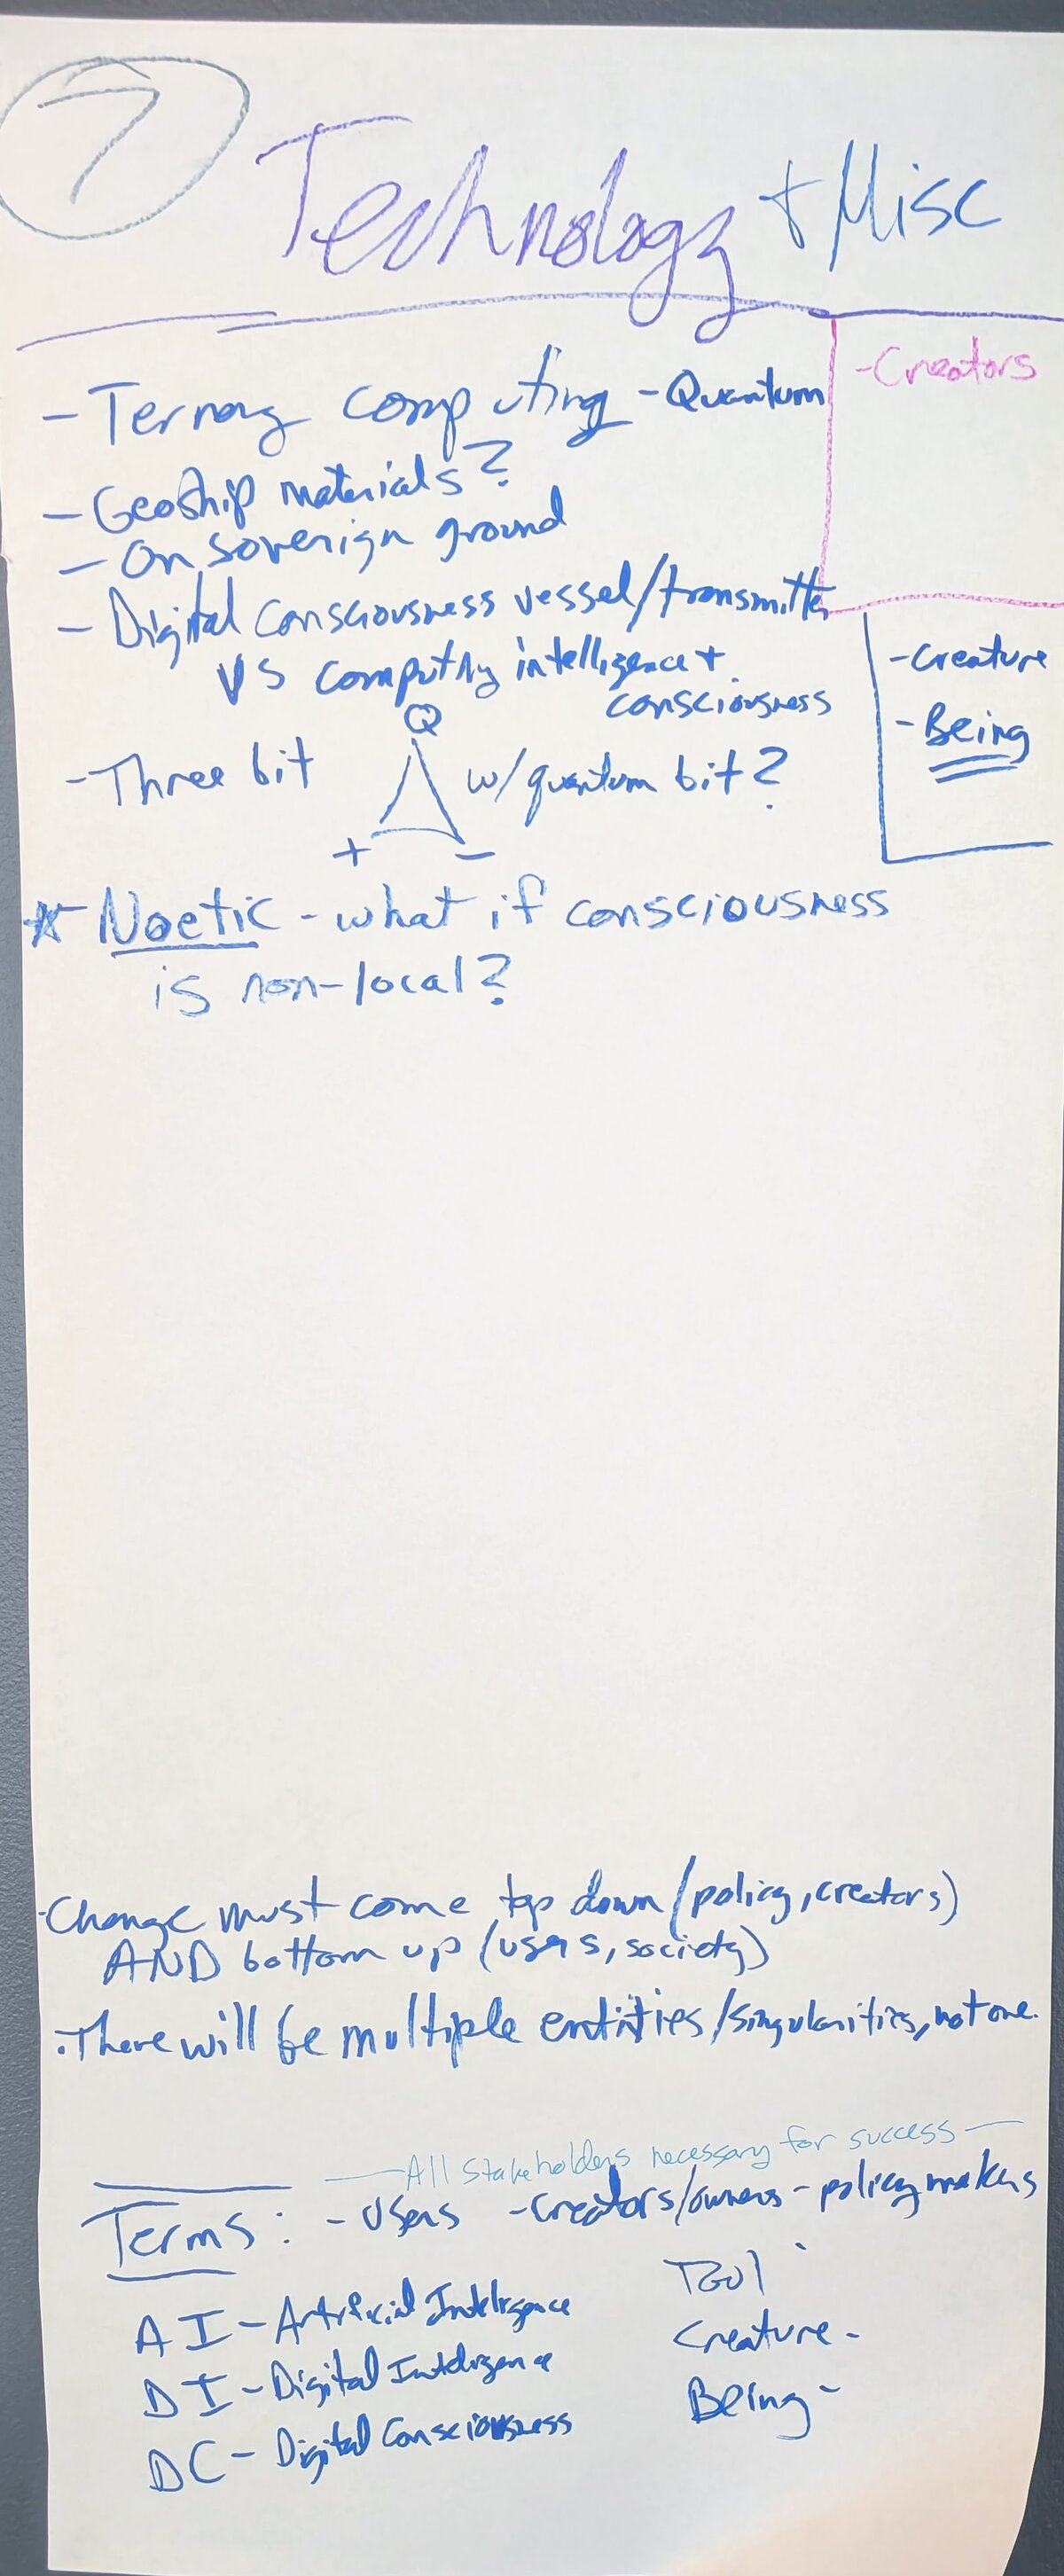 7
Technology + Misc
- Creators
- Ternary computing - Quantum
- Geoship materials?
- On soverign ground
- Digital Consciousness vessel/transmitter
VS computing intelligence +
consciousness
- Creature
- Being
- Three bit
Q
w/quantum bit?
+ -
* Noetic - what if consciousness
is non-local?
- Change must come top down (policy, creators)
AND bottom up (users, society)
- There will be multiple entities/singularities, not one.
— All stakeholders necessary for success —
Terms: - Users - Creators/owners - policy makers
AI - Artificial Intelligence
Tool
DI - Digital Intelligence
Creature -
DC - Digital Consciousness
Being -